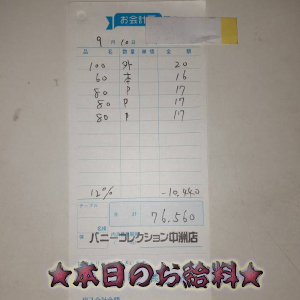 お会計
9月10日
品名 数量 単価 金額
100 外 20
60 本 16
80 P 17
80 P 17
80 P 17
12% -10,440
テーブル
合計 76,560
バニーコレクション中洲店
★本日のお給料★